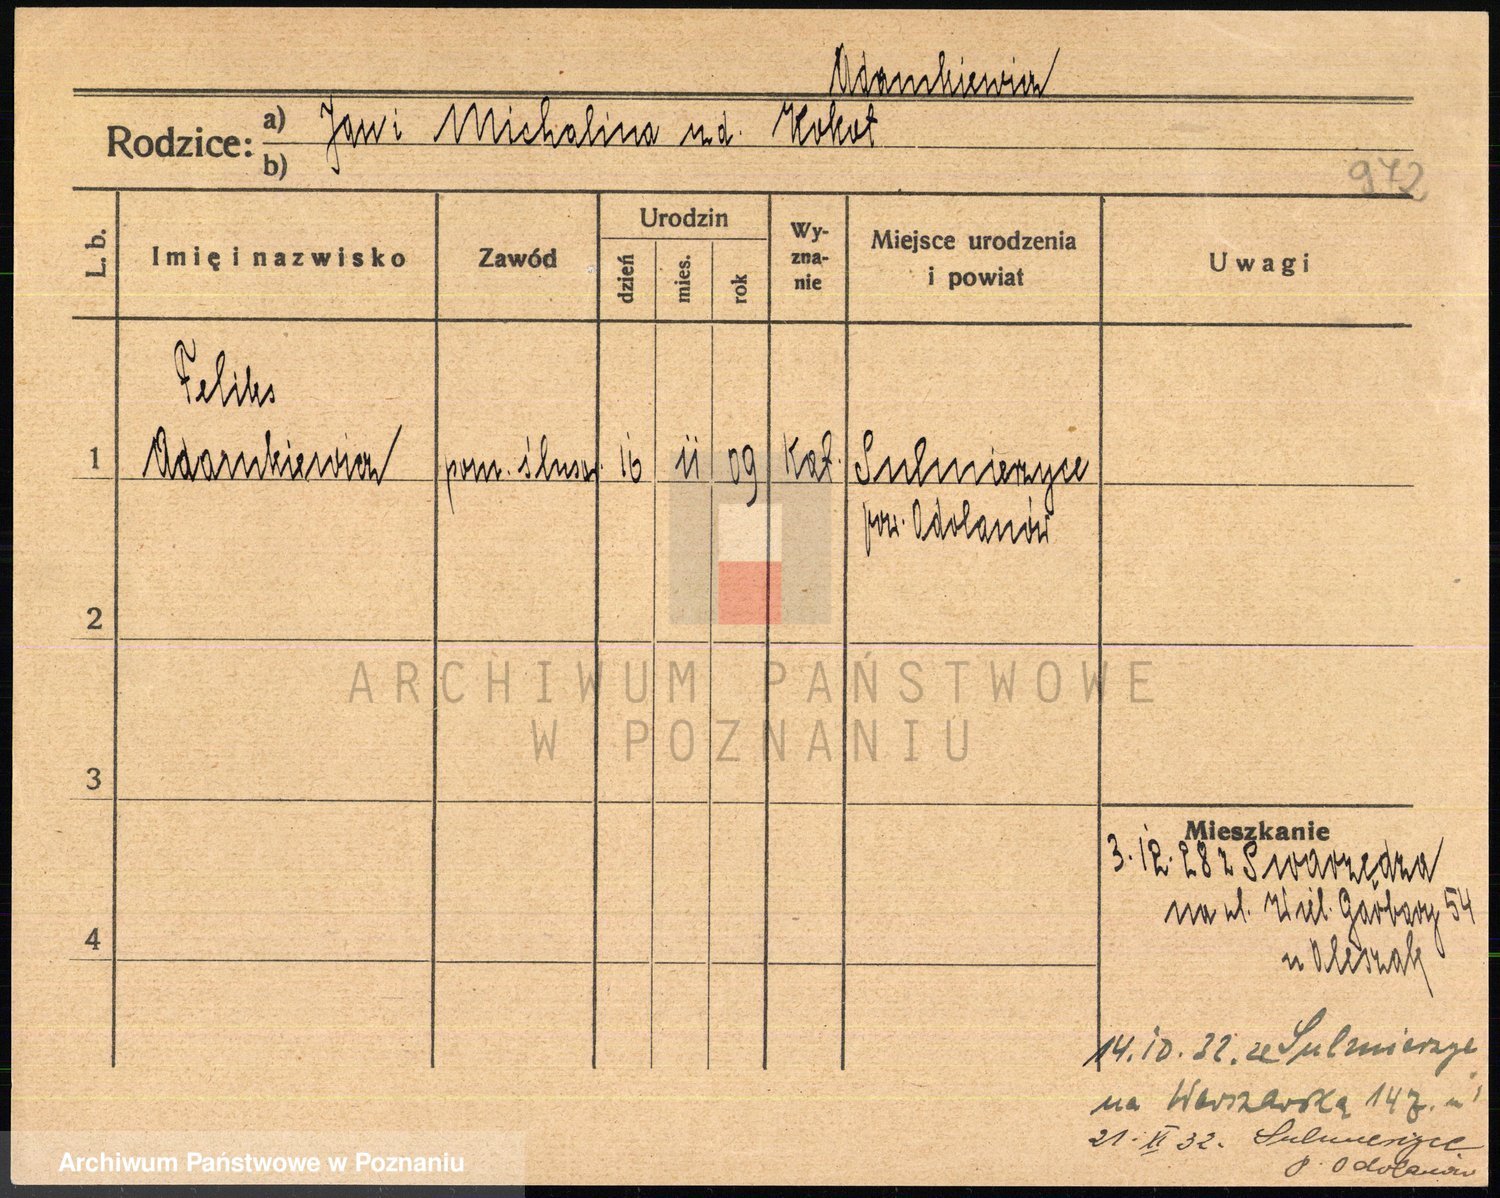 Adamkiewicz
Rodzice: a) Jan i Michalina ud. Kokot
b)
972
L. b.
Imię i nazwisko
Zawód
Urodzin
dzień
mies.
rok
Wy-
zna-
nie
Miejsce urodzenia
i powiat
Uwagi
Feliks
1 Adamkiewicz pom. ślusar. 16 11 09 Kat. Sulmierzyce
pow. Odolanów
2
ARCHIWUM PAŃSTWOWE
W POZNANIU
3
Mieszkanie
3.12.28 z Swarzędza
na ul. Wiel. Garbary 54
u Oleszak
4
14.10.32. ze Sulmierzyc
na Warszawską 147.
21.XI 32. Sulmierzyce
p. Odolanów
Archiwum Państwowe w Poznaniu